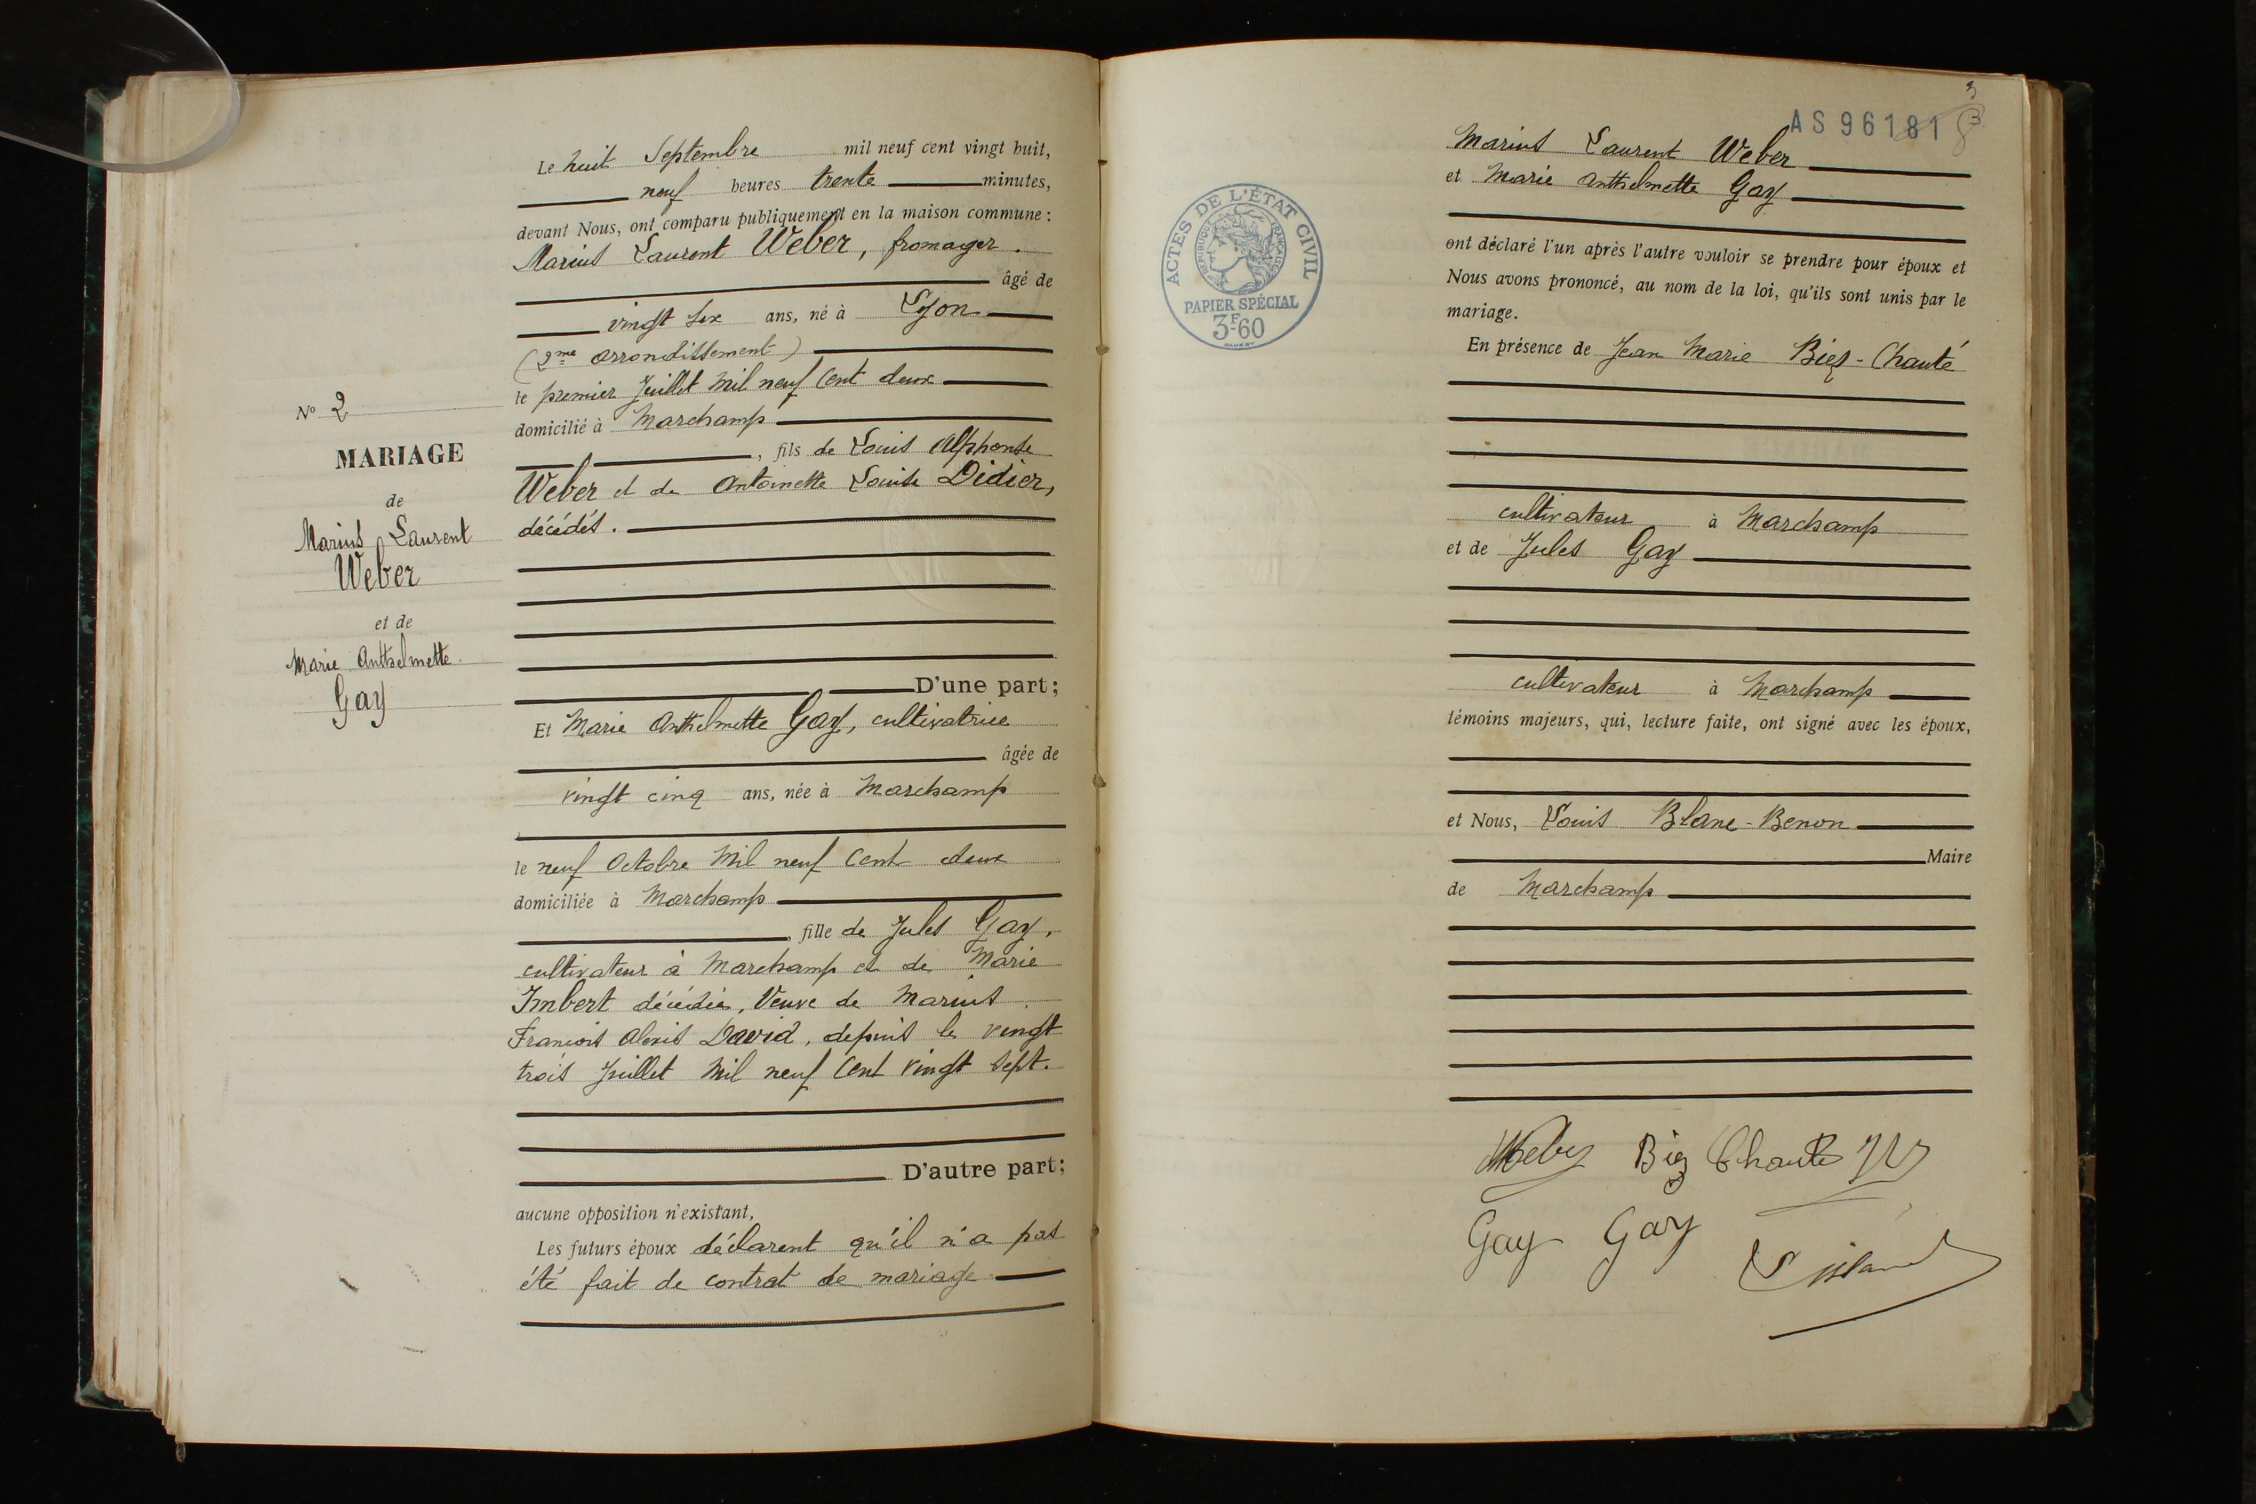 N° 2
MARIAGE
de
Marius Laurent
Weber
et de
Marie Anthelmette
Gay
Le huit Septembre mil neuf cent vingt huit,
neuf heures trente minutes,
devant Nous, ont comparu publiquement en la maison commune :
Marius Laurent Weber, fromager.
âgé de
vingt six ans, né à Lyon
(2me arrondissement)
le premier Juillet Mil neuf Cent deux
domicilié à Marchamp
, fils de Louis Alphonse
Weber et de Antoinette Louise Didier,
décédés.
D'une part ;
Et Marie Anthelmette Gay, cultivatrice
âgée de
vingt cinq ans, née à Marchamp
le neuf Octobre Mil neuf Cent deux
domiciliée à Marchamp
, fille de Jules Gay,
cultivateur à Marchamp et de Marie
Imbert décédée, Veuve de Marius
Francois Alexis David, depuis le vingt
trois Juillet Mil neuf Cent Vingt sept.
D'autre part ;
aucune opposition n'existant,
Les futurs époux déclarent qu'il n'a pas
été fait de contrat de mariage
AS 96181
3
ACTES DE L'ÉTAT CIVIL
RÉPUBLIQUE FRANÇAISE
PAPIER SPÉCIAL
3F60
Marius Laurent Weber
et Marie Anthelmette Gay
ont déclaré l'un après l'autre vouloir se prendre pour époux et
Nous avons prononcé, au nom de la loi, qu'ils sont unis par le
mariage.
En présence de Jean Marie Biez-Chauté
cultivateur à Marchamp
et de Jules Gay
cultivateur à Marchamp
témoins majeurs, qui, lecture faite, ont signé avec les époux,
et Nous, Louis Blanc-Benon
Maire
de Marchamp
Weber Biez Chauté
Gay Gay